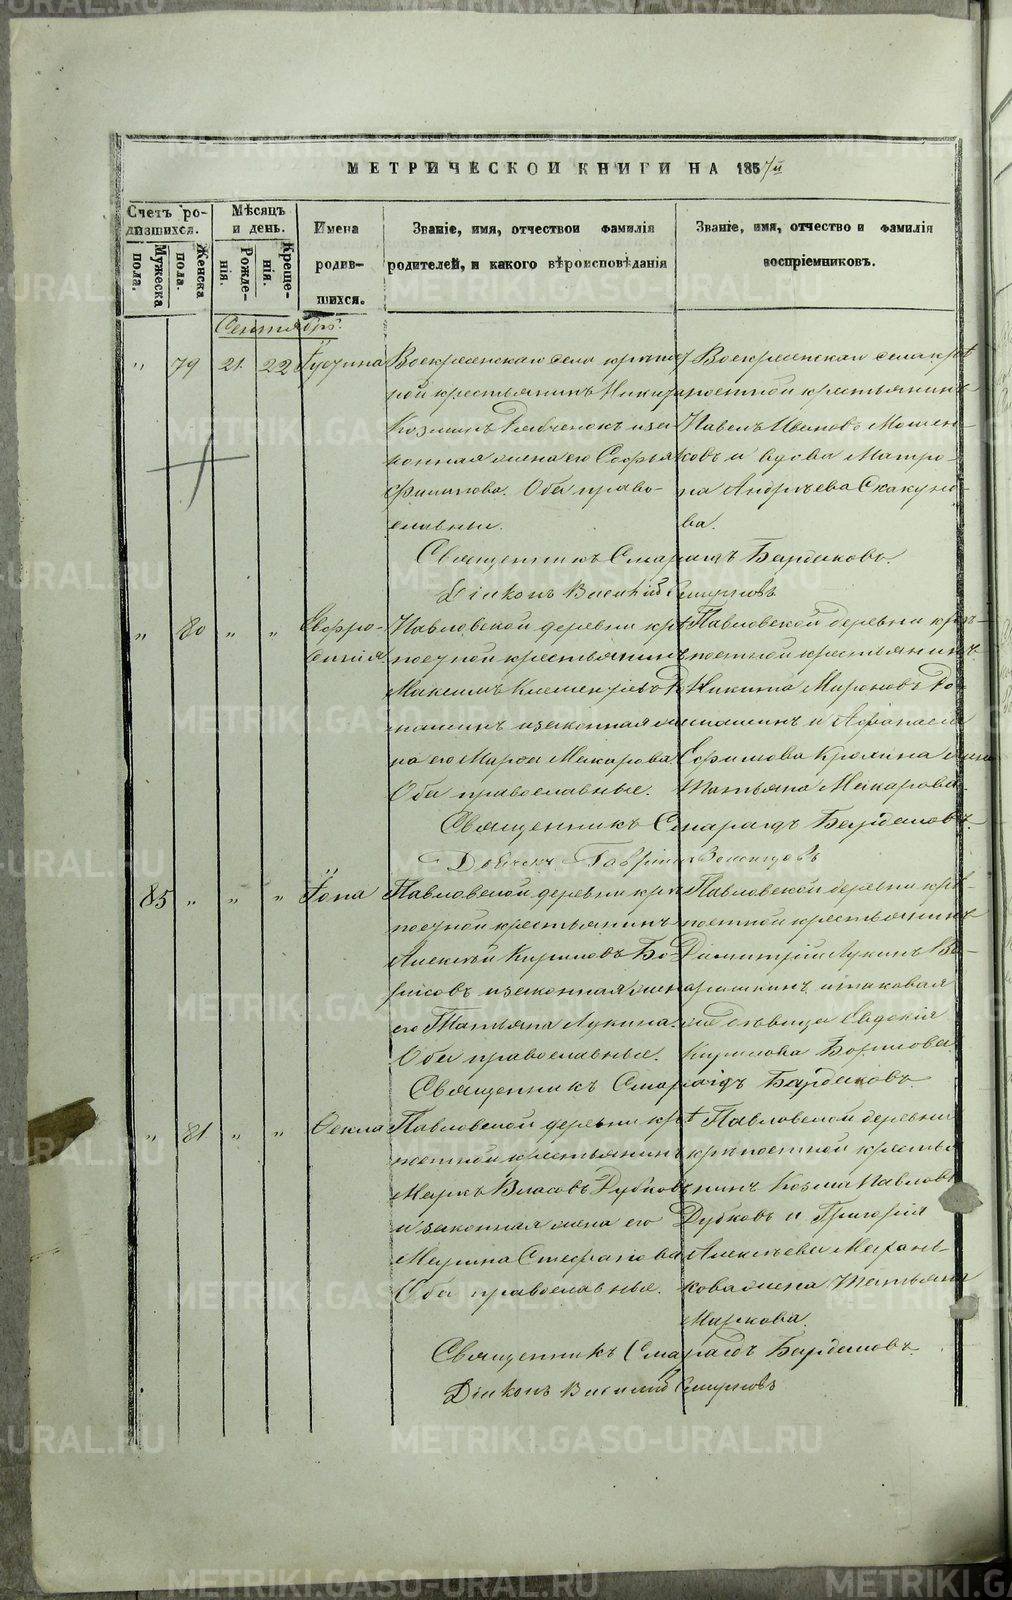 МЕТРИЧЕСКОЙ КНИГИ НА 1857й
Счетъ родившихся.
Мужеска пола.
Женска пола.
Мѣсяцъ и день.
Рожденія.
Крещенія.
Имена родившихся.
Званіе, имя, отчествои фамилія
родителей, и какого вѣроисповѣданія
Званіе, имя, отчество и фамилія
воспріемниковъ.
Сентябрь.
" 79 21. 22 Іустина
Воскресенскаго села крѣпост
ной крестьянинъ Никита
Козминъ иза
конная жена его Софья
Филипова. Оба право-
славныи.
Воскресенскаго села крѣ
постной крестьянинъ
Павелъ Ивановъ Мошен-
ковъ и вдова Матро-
на Андрѣева Скакуно-
ва.
Священникъ Смарагдъ Бардаковъ.
Діаконъ Василій Смирновъ
" 80 " " Евфро-
синія
Павловской деревни крѣ
постной крестьянинъ
Максимъ Климентіевъ Ро
машинъ изаконная же
на его Марѳа Макарова
Оба православные.
Павловской деревни крѣ-
постной крестьянинъ
Никита Мироновъ Ро-
машинъ и Афанасія
Ефимова Кромина жена
Татьяна Макарова.
Священникъ Смарагдъ Бардаковъ.
Дьячекъ Гавріилъ
85 " " " Іона
Павловской деревни крѣ
постной крестьянинъ
Алексѣй Кириловъ Бо-
рисовъ изаконная жена
его Татьяна Лукина.
Оба православные.
Павловской деревни крѣ-
постной крестьянинъ
Димитрій Лукинъ
и таковая
же дѣвица Евдокія
Кирилова Борисова.
Священникъ Смарагдъ Бардаковъ.
" 81 " " Ѳекла
Павловской деревни крѣ
постной крестьянинъ
Маркъ Власовъ Дубковъ
и законная жена его
Марина Стефанова
Оба православные.
Павловской деревни
крѣпостной крестья
нинъ Козма Павловъ
Дубковъ и Григорія
Алексѣева
кова жена Татьяна
Маркова.
Священникъ Смарагдъ Бардаковъ.
Діаконъ Василій Смирновъ